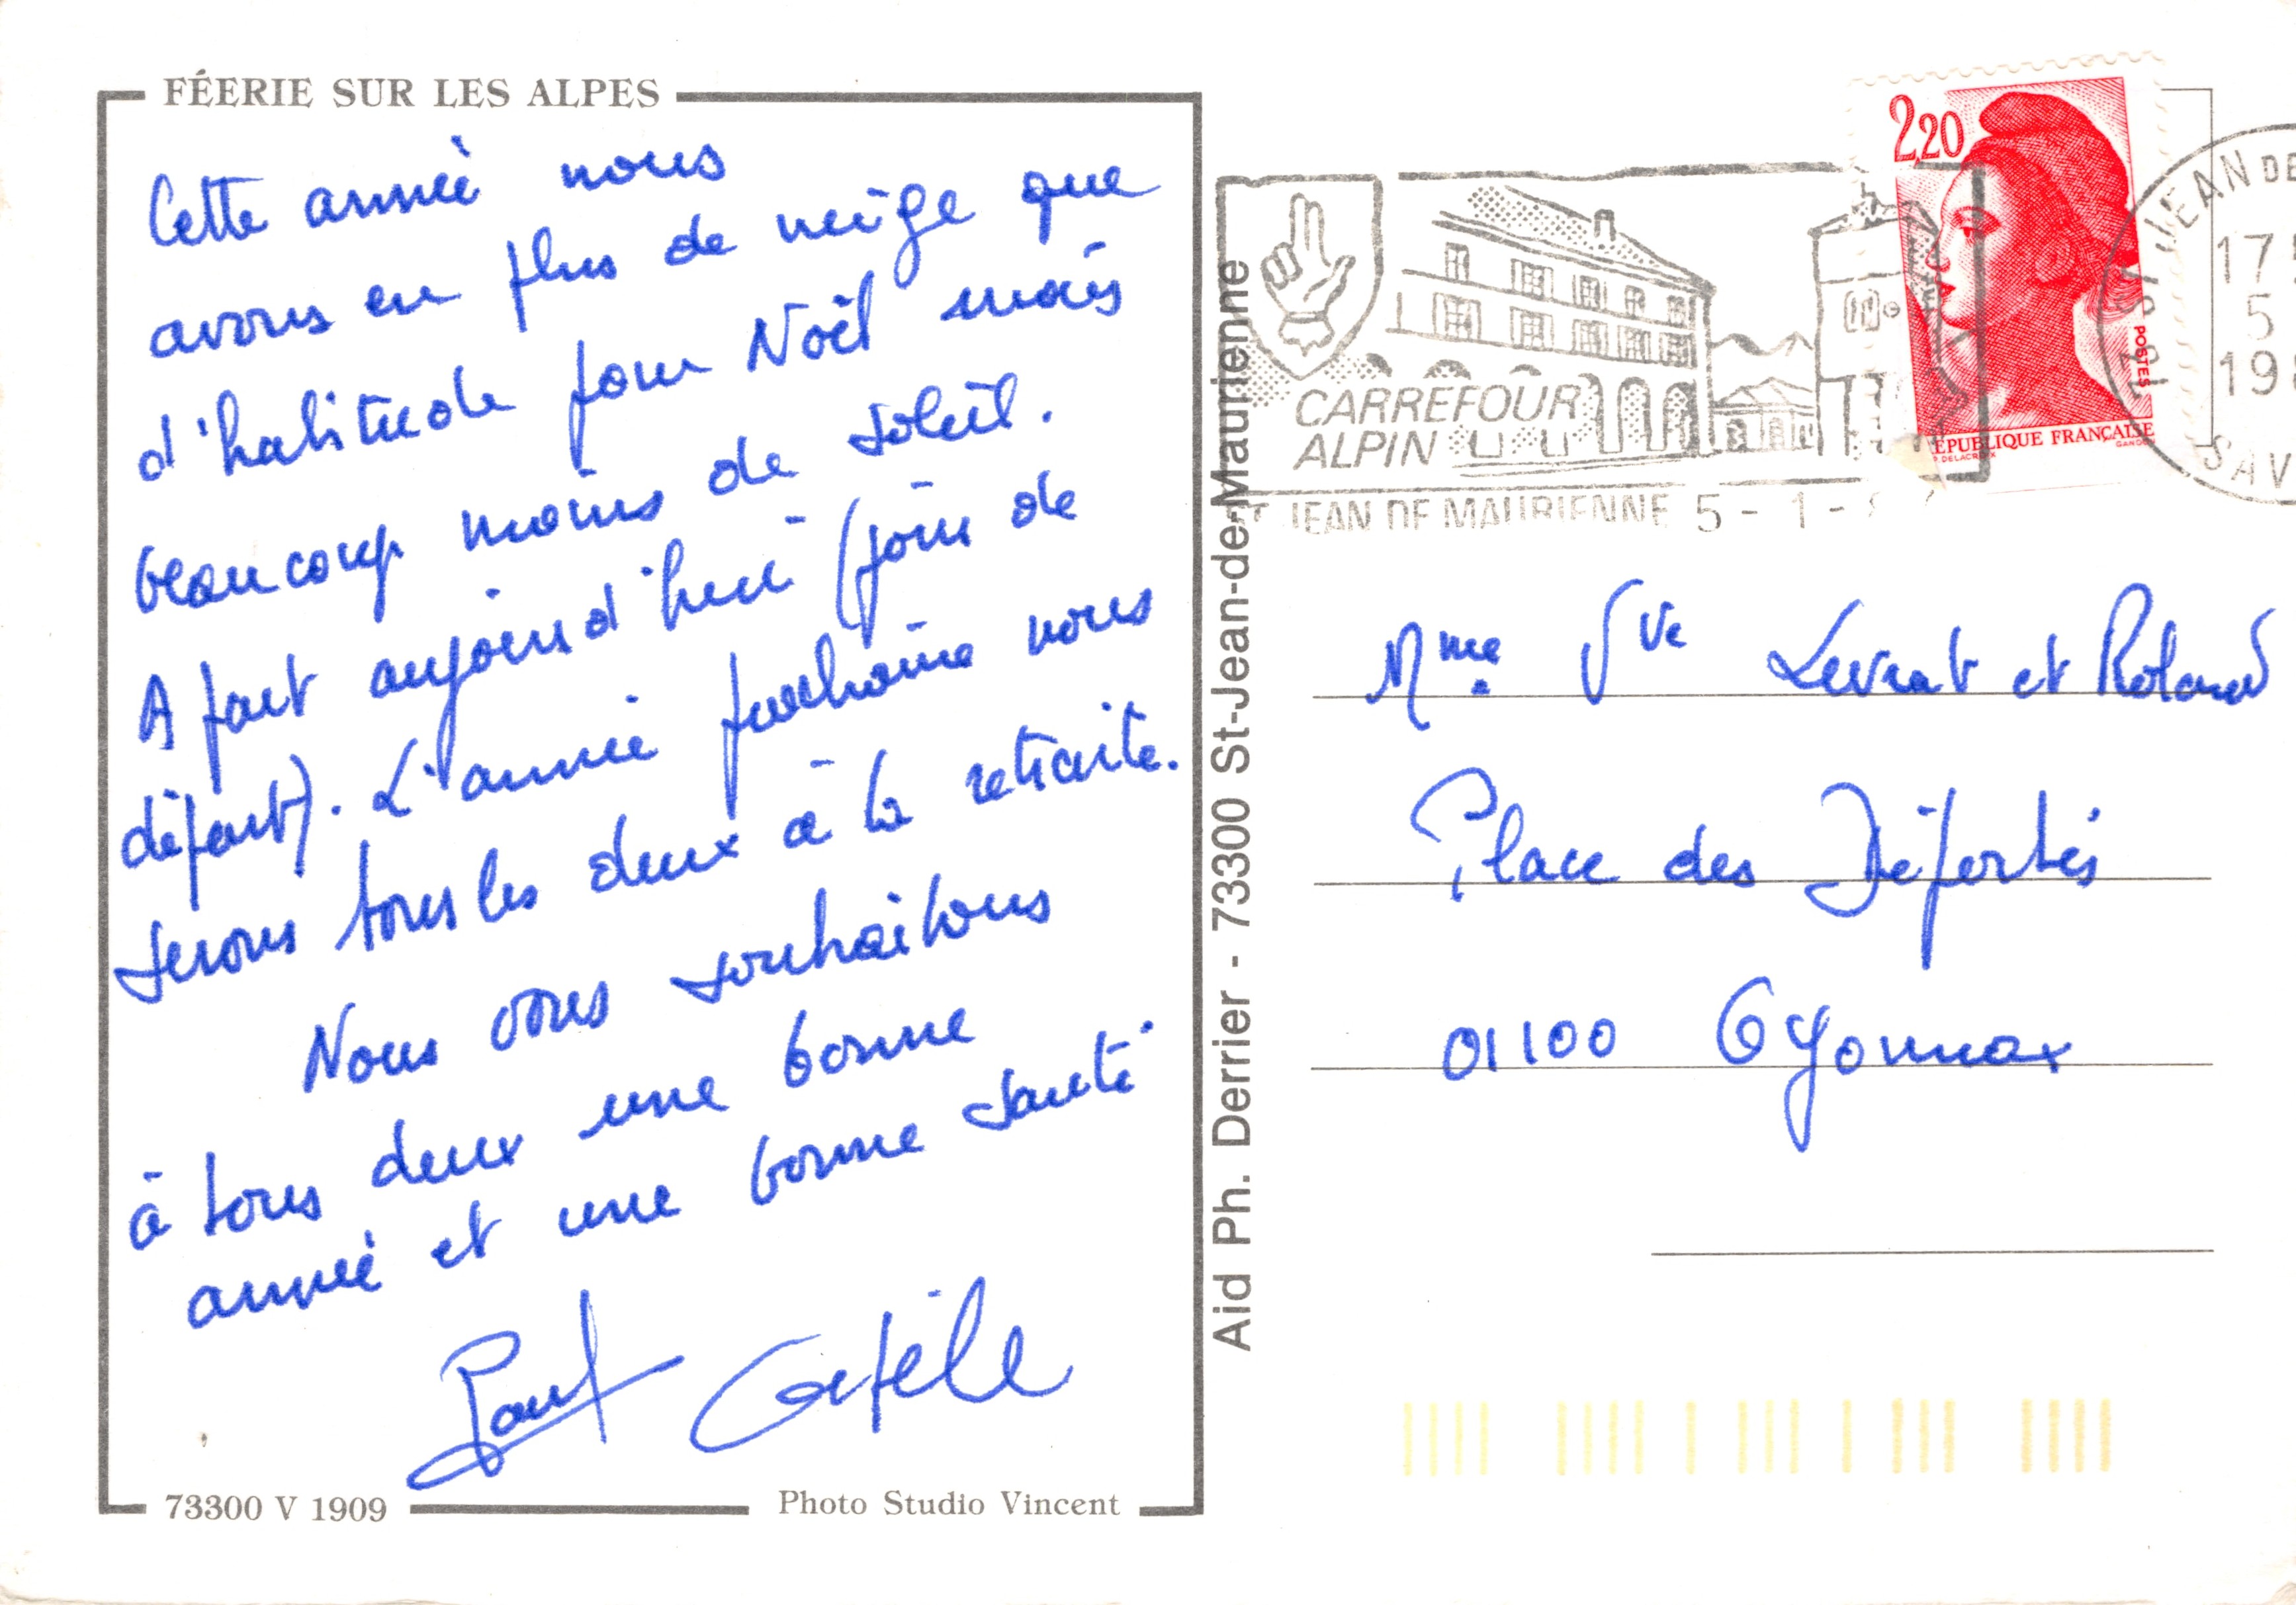 FÉERIE SUR LES ALPES
Cette année nous
avons eu plus de neige que
d'habitude pour Noël mais
beaucoup moins de soleil.
A part aujourd'hui (jour de
départ). L'année prochaine nous
serons tous les deux à la retraite.
Nous vous souhaitons
à tous deux une bonne
année et une bonne santé
Paul
73300 V 1909
Photo Studio Vincent
Aid Ph. Derrier - 73300 St-Jean-de-Maurienne
CARREFOUR
ALPIN
JEAN DE MAURIENNE 5 - 1 -
2,20
POSTES
EPUBLIQUE FRANÇAISE
ST JEAN DE
17
5
19
SAV
Mme Vve Levrat et Roland
Place des Déportés
01100 Oyonnax